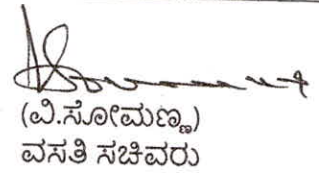 (ವಿ.ಸೋಮಣ್ಣ)
ವಸತಿ ಸಚಿವರು